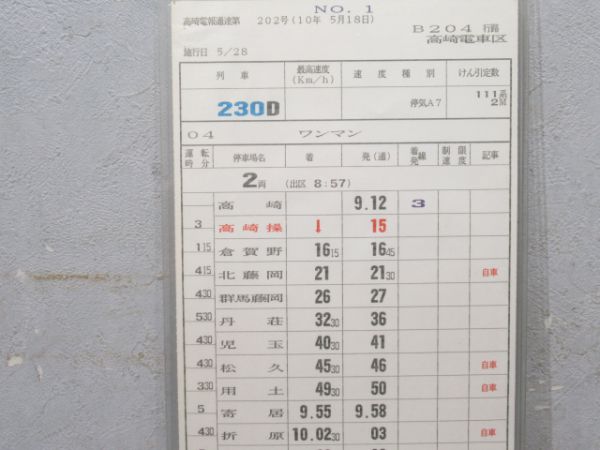 NO. 1
高崎電報通達第 202号(10年 5月18日)
B204 行路
高崎電車区
施行日 5/28
列車 最高速度(Km/h) 速度種別 けん引定数
230D 停気A7 111系 2M
04 ワンマン
運転時分 停車場名 着 発(通) 着線発線 制限速度 記事
2両 (出区 8:57)
高崎 9.12 3
3 高崎操 ↓ 15
115 倉賀野 1615 1645
415 北藤岡 21 2130 自車
430 群馬藤岡 26 27
530 丹荘 3230 36
430 児玉 4030 41
430 松久 4530 46 自車
330 用土 4930 50 自車
5 寄居 9.55 9.58
430 折原 10.0230 03 自車